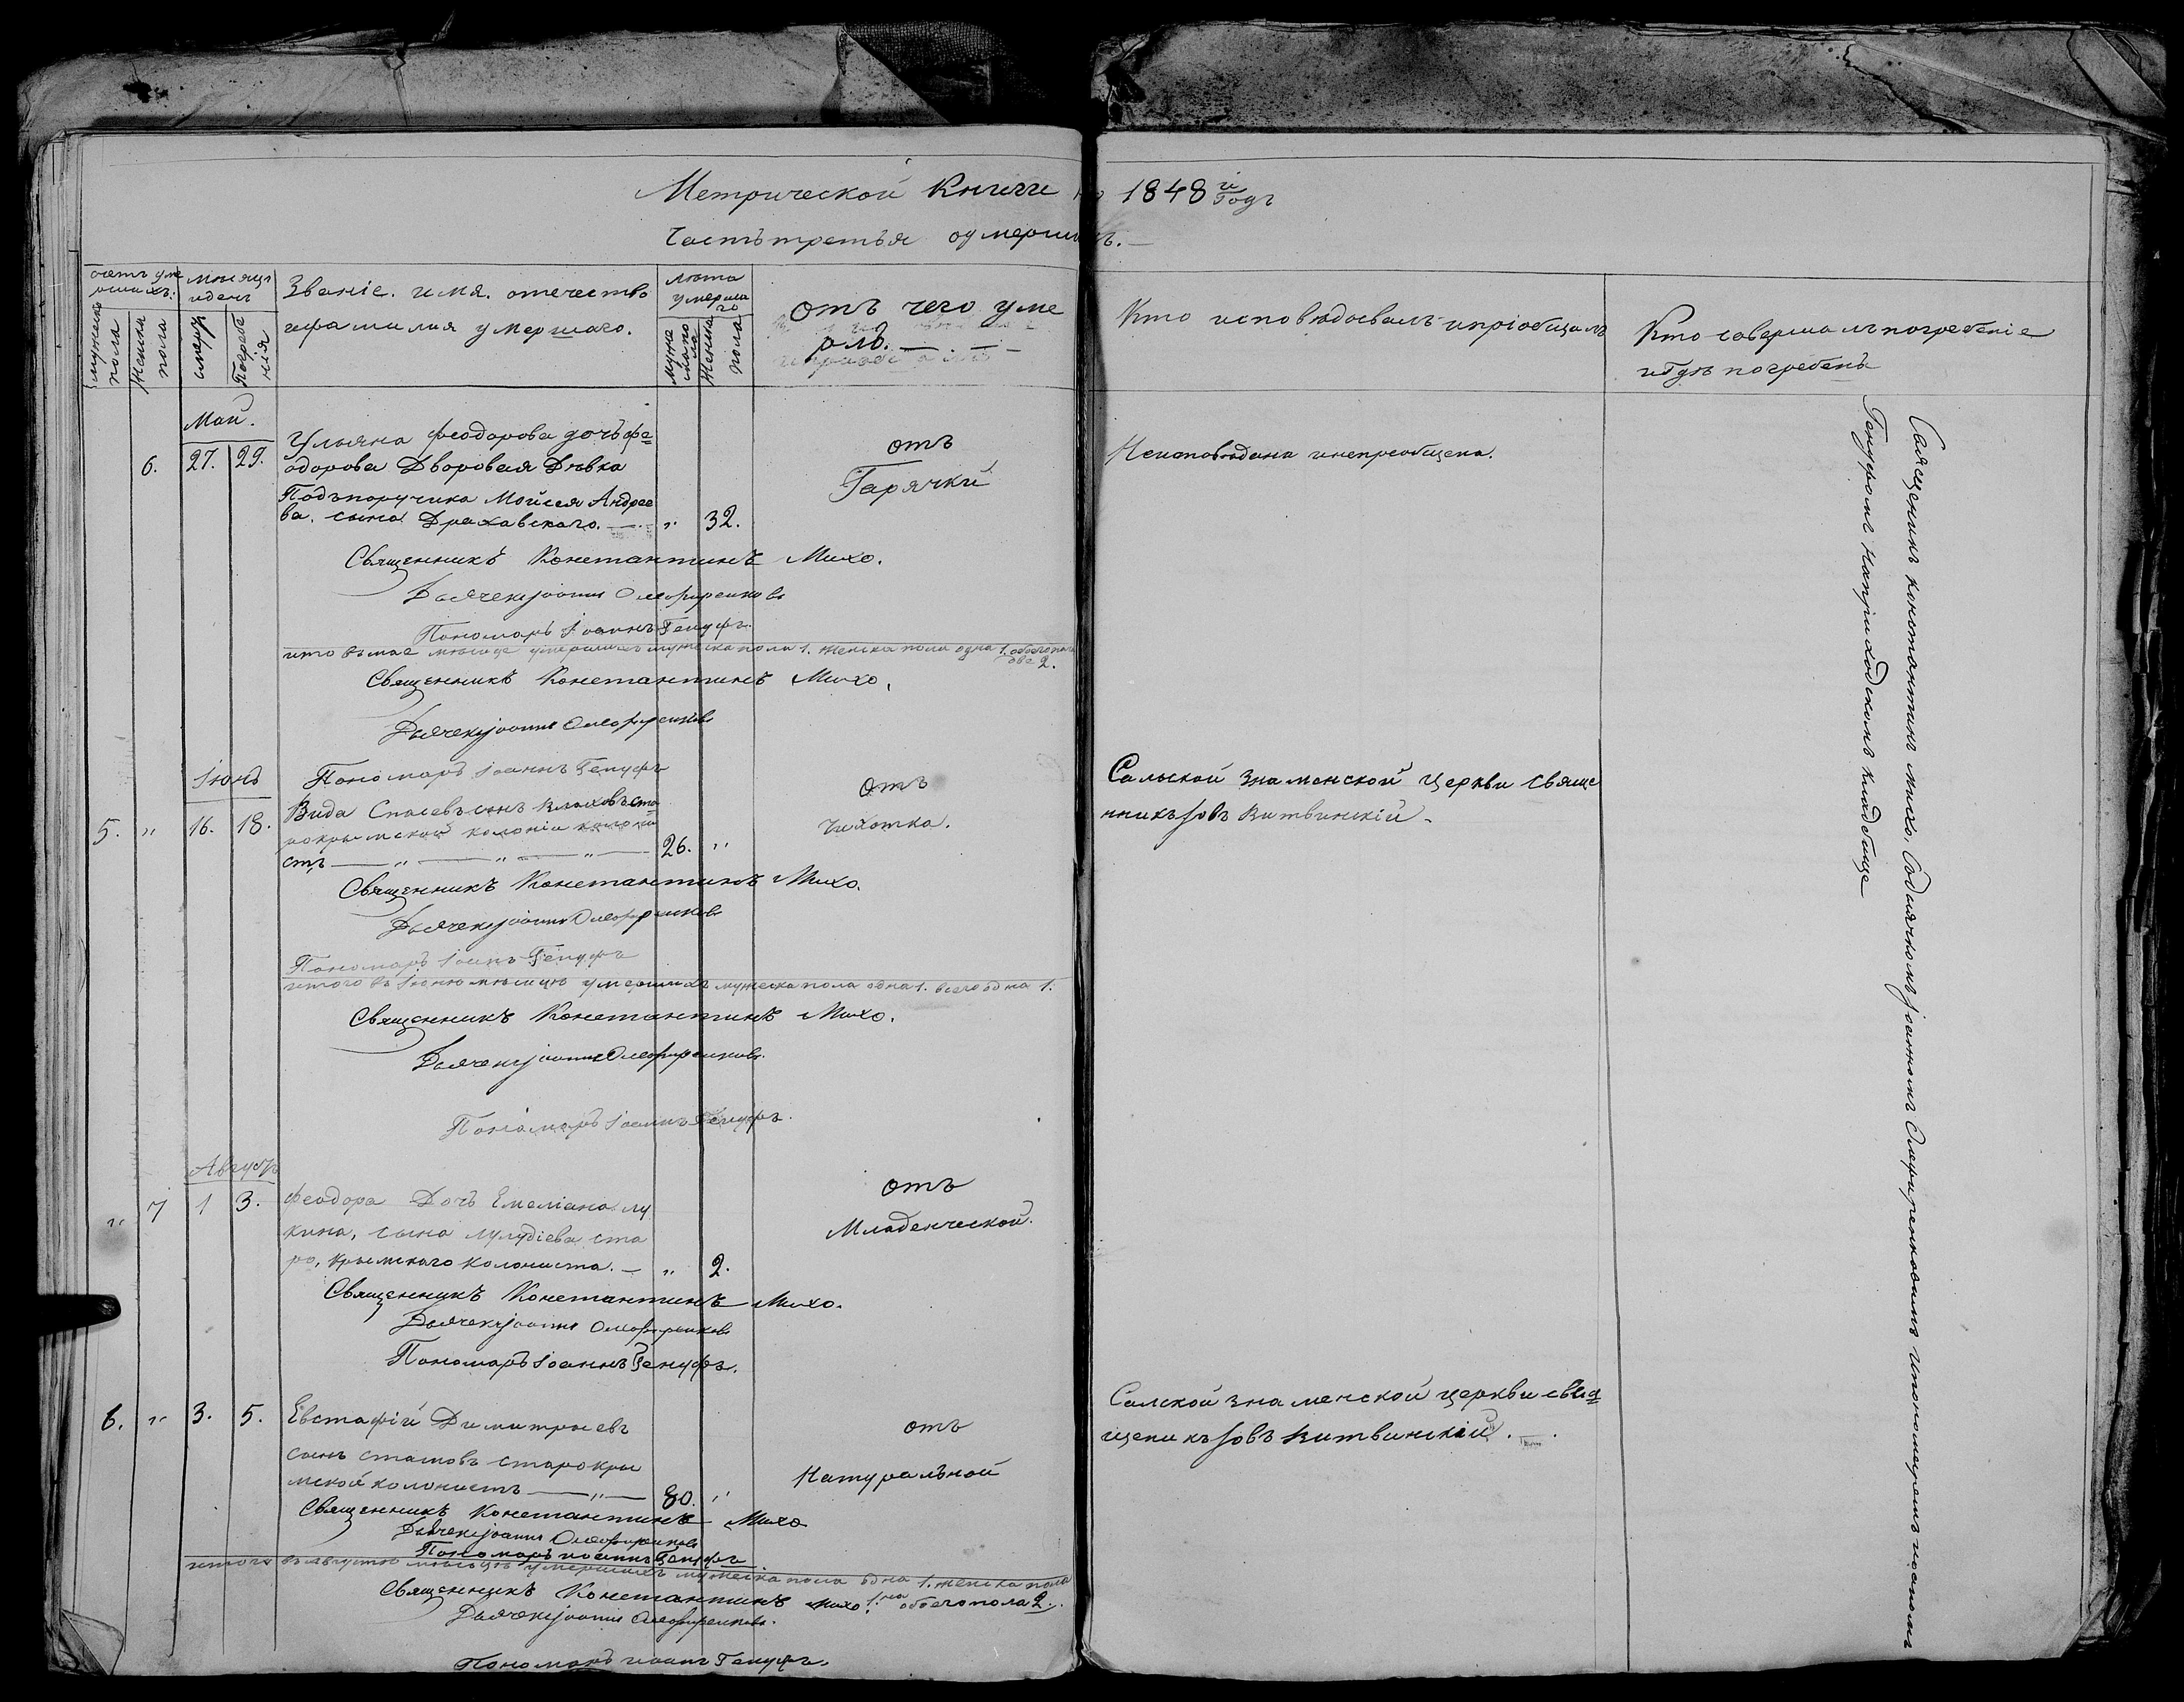 Метрической Книги на 1848й Годъ
Часть третья оумершихъ.
счетъ уме
ршихъ:
мѣсяцъ
идень
Званіе. имя. отечество
ифамилия умершаго.
лѣта
умерша
го
отъ чего уме
рлъ.
Кто исповѣдовалъ ипріобщалъ
Кто совершалъ погребеніе
игдѣ погребенъ
мужеска
пола
женска
пола
смерт
Погребе
нія
муже
скаго
пола
Женска
пола
Май.
6. 27. 29.
Ульяна Феодорова дочь Фе=
одорова Дворовая Дѣвка
Подъпоручика Мойсея Андрее
ва. сына Драховскаго. — „ 32.
отъ
Гарячки
Неисповѣдана инепреобщена.
Священникъ Константинъ Михо.
Дьячекъ Іоаннъ Олефиренковъ
Пономарь Іоаннъ Генуфъ.
итого вмае мѣсяце умершихъ мужеска пола 1. женска пола одна 1. обоего пола
два 2.
Священникъ Константинъ Михо.
Дьячекъ Іоаннъ Олефиренковъ
Пономарь Іоаннъ Генуфъ
Іюнь
5. „ 16. 18.
Вида Спасевъ сынъ Влаховъ ста
рокрымской колоніи колони
стъ — „ — „ — „ — 26. „
отъ
Чихотка.
Сальской Знаменской Церкви Свяще
нникъ Іовъ Витвинскій.
Священникъ Константинъ Михо.
Дьячекъ Іоаннъ Олефиренковъ
Пономарь Іоанъ Генуфъ
итого въ Іюню мѣсицю умершихъ мужеска пола одна 1. всего одна 1.
Священникъ Константинъ Михо.
Дьячекъ Іоаннъ Олефиренковъ.
Пономарь Іоаннъ Генуфъ.
Августъ
„ 7 1 3.
Феодора Дочь Емеліана лу
кина, сына лулудіева ста
ро, крымскаго колониста. — „ 2.
отъ
Младенческой.
Священникъ Константинъ Михо.
Дьячекъ Іоаннъ Олефиренковъ
Пономарь Іоаннъ Генуфъ.
6. „ 3. 5.
Евстафій Димитрыевъ
сынъ стамовъ старокры
мской колонистъ — „ — 80. „
отъ
Натуральной
Салской знаменской церкви свя
щеникъ Іовъ Витвинскій.
Священникъ Константинъ Михо
Дьячекъ Іоаннъ Олефиренковъ
Пономарь иоаннъ Генуфъ
итого въ августѣ мѣсяцѣ умершихъ мужеска пола одна 1. женска пола
1. обоего пола 2.
Священникъ Константинъ Михо.
Дьячекъ Іоаннъ Олефиренковъ.
Пономарь иоанъ Генуфъ.
Священникъ константинъ михо. Содьячкомъ Іоанномъ Олефиренковимъ ипономаремъ иоаномъ
Генуфомъ наприходскомъ кладбище